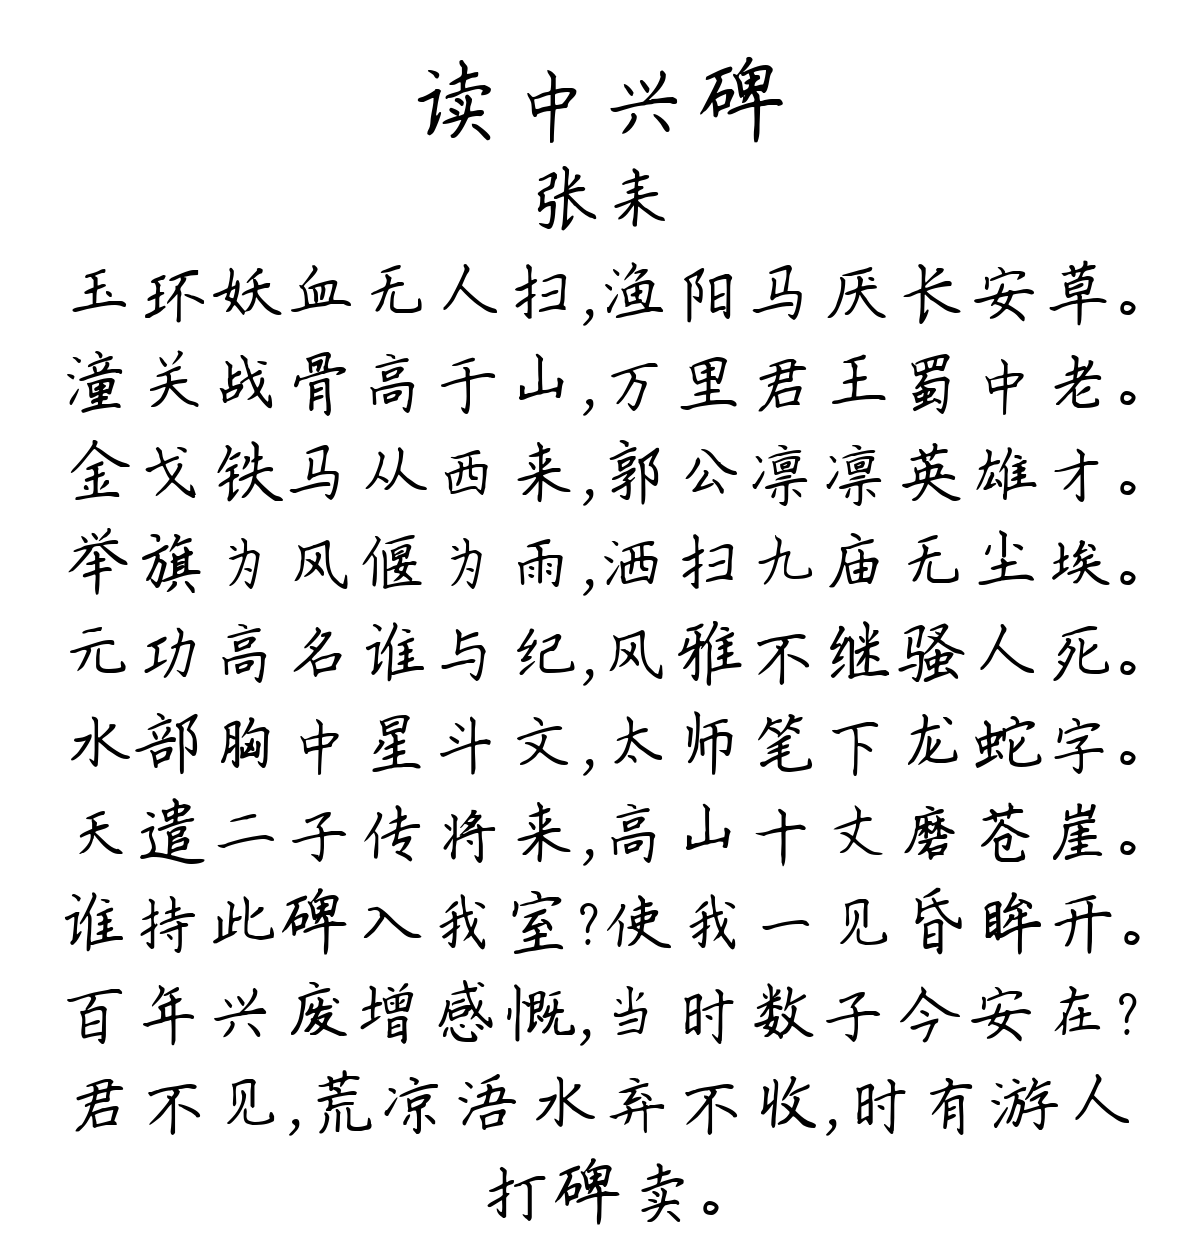 读中兴碑
张耒
玉环妖血无人扫,渔阳马厌长安草。
潼关战骨高于山,万里君王蜀中老。
金戈铁马从西来,郭公凛凛英雄才。
举旗为风偃为雨,洒扫九庙无尘埃。
元功高名谁与纪,风雅不继骚人死。
水部胸中星斗文,太师笔下龙蛇字。
天遣二子传将来,高山十丈磨苍崖。
谁持此碑入我室?使我一见昏眸开。
百年兴废增感慨,当时数子今安在?
君不见,荒凉浯水弃不收,时有游人
打碑卖。